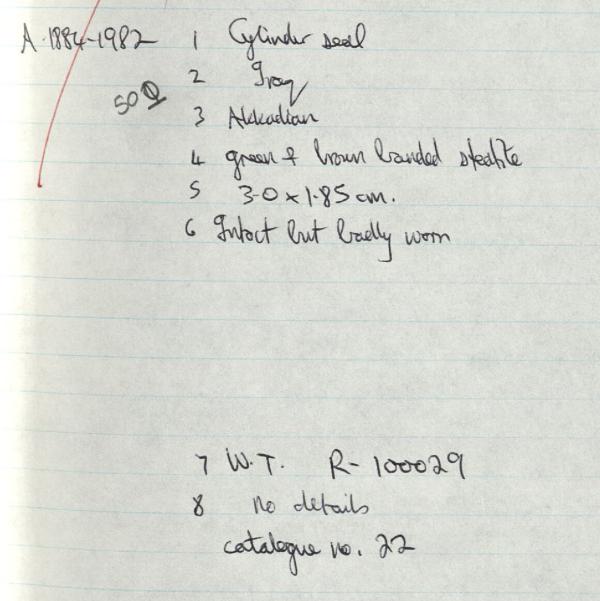 A.1884-1982 1 Cylinder seal
2 Iraq
50
3 Akkadian
4 green & brown banded steatite
5 3.0 x 1.85 cm.
6 Intact but badly worn
7 W.T. R-100029
8 no details
catalogue no. 22